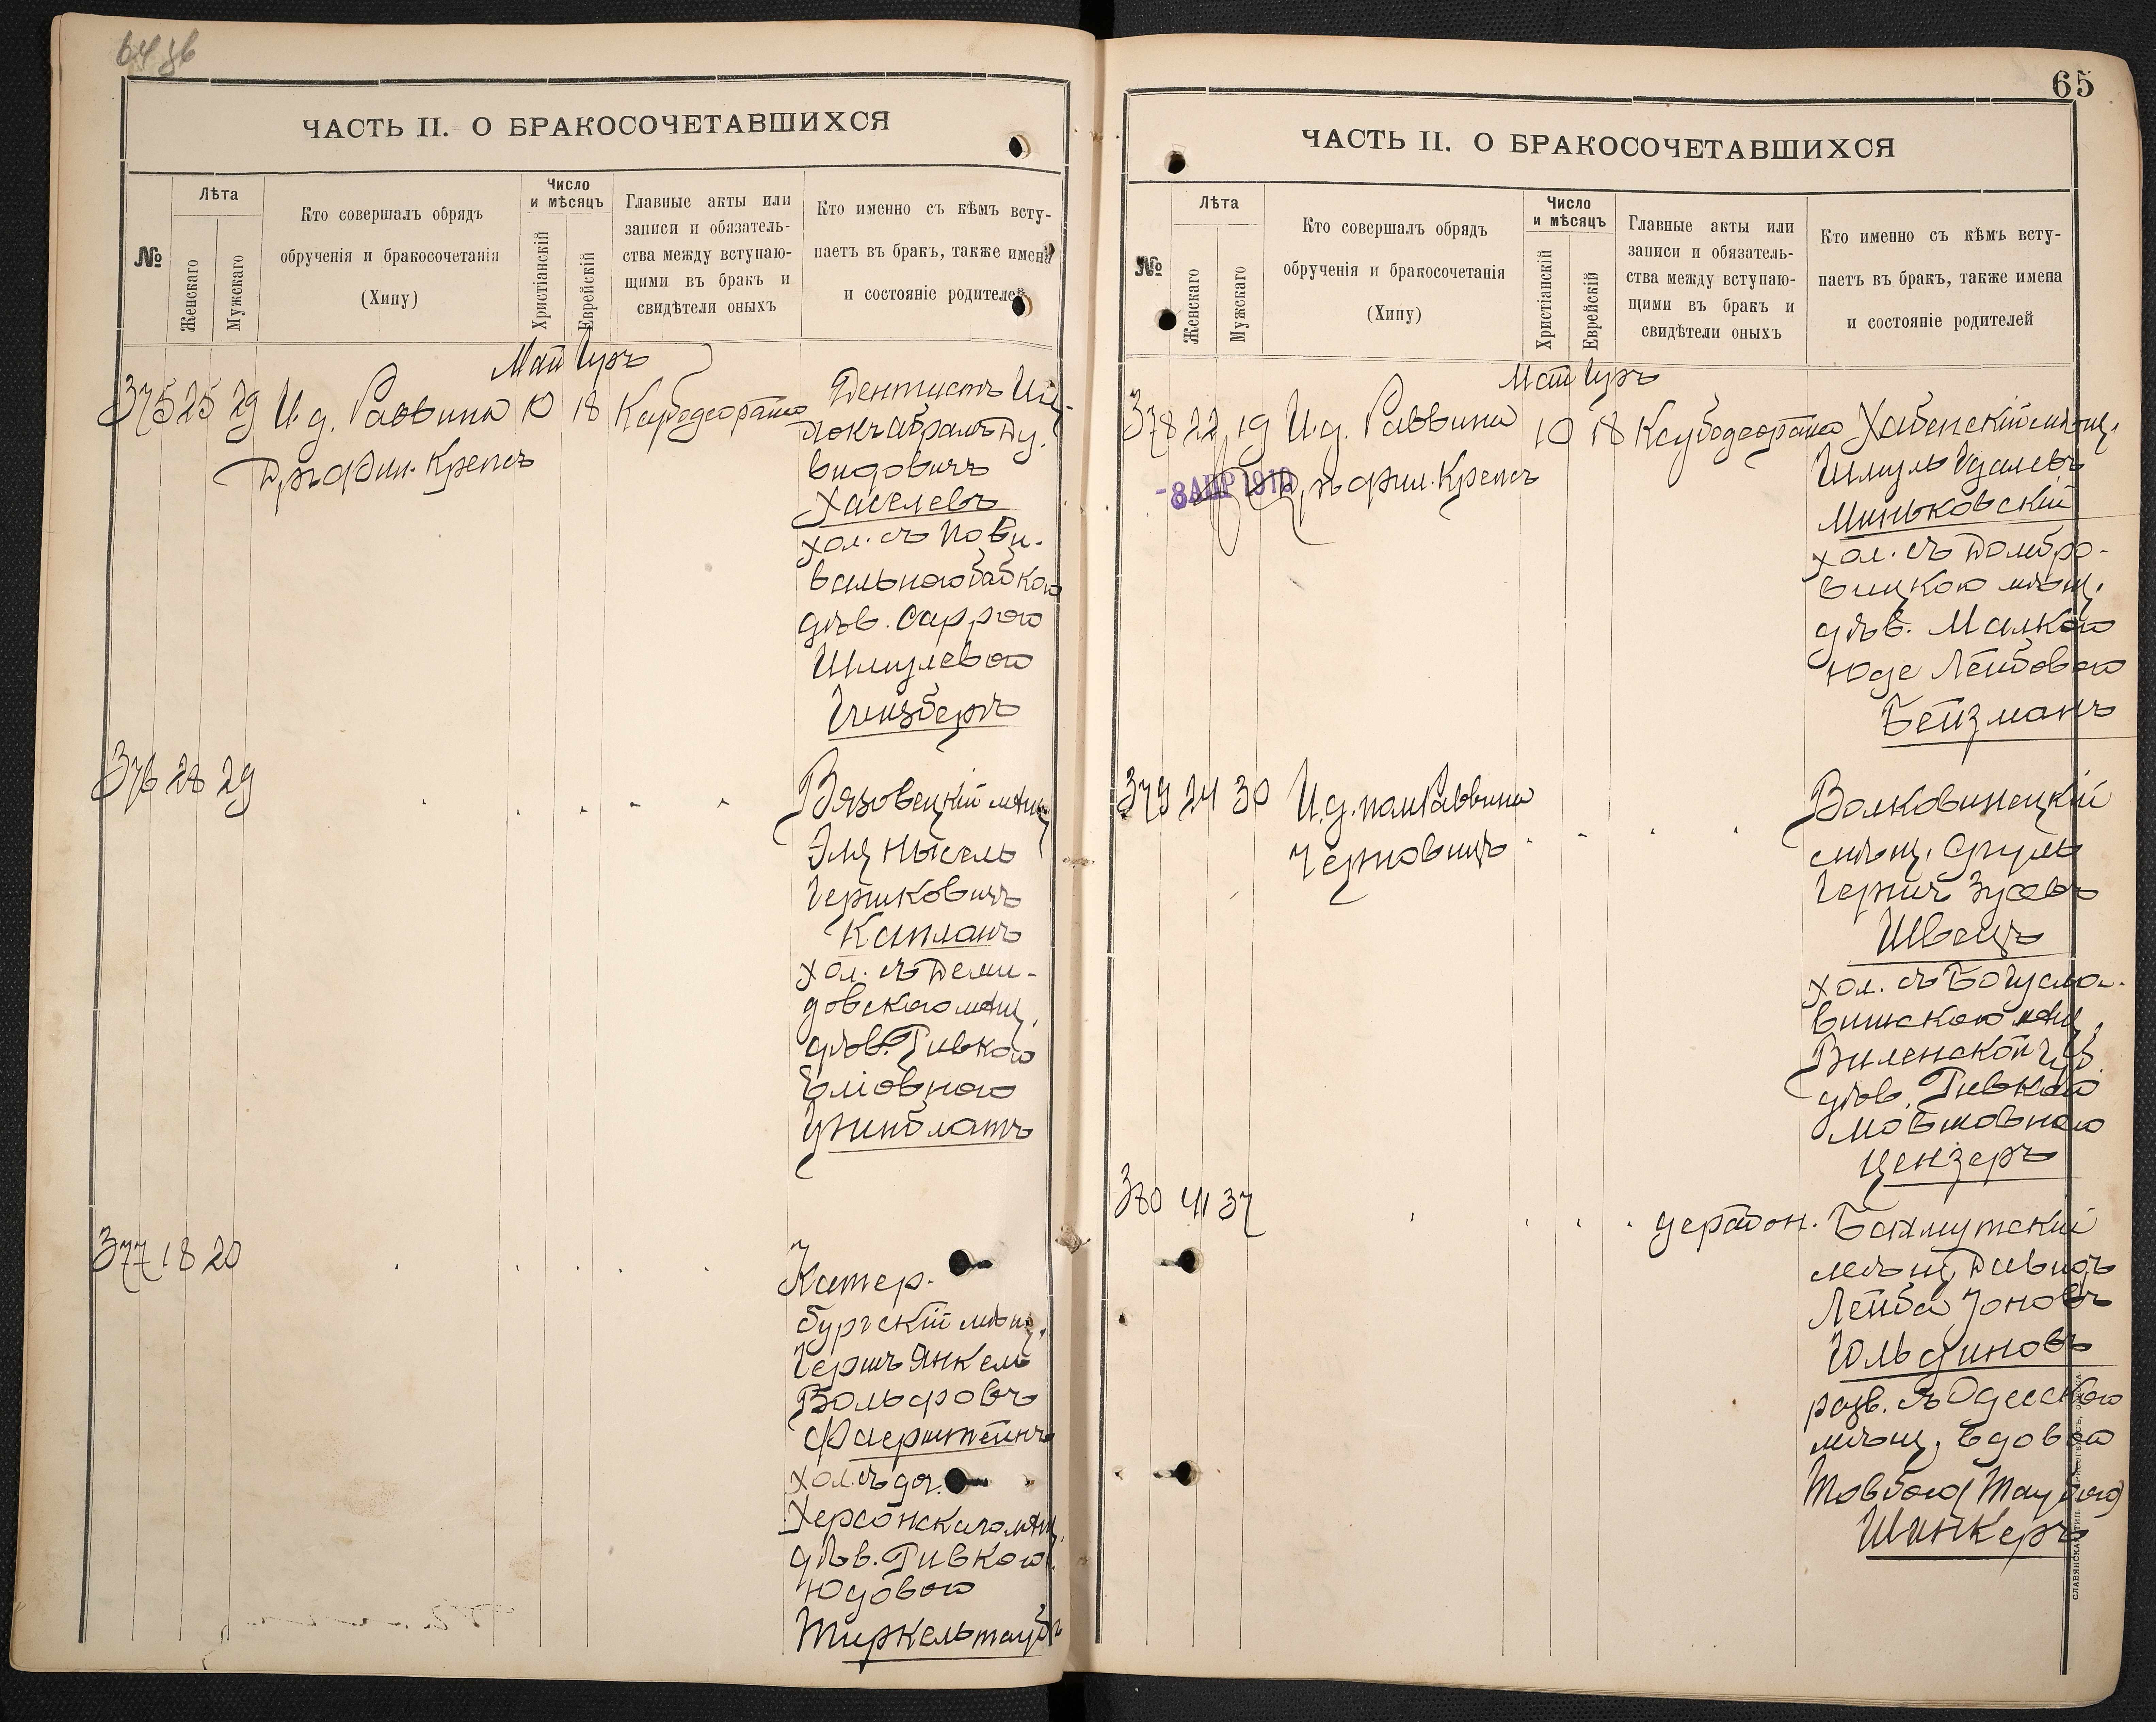 64 об
ЧАСТЬ II. О БРАКОСОЧЕТАВШИХСЯ
№
Лѣта
Женскаго
Мужскаго
Кто совершалъ обрядъ
обрученія и бракосочетанія
(Хипу)
Число
и мѣсяцъ
Христіанскій
Еврейскій
Главные акты или
записи и обязатель-
ства между вступаю-
щими въ бракъ и
свидѣтели оныхъ
Кто именно съ кѣмъ всту-
паетъ въ бракъ, также имена
и состояніе родителей
Май Іиръ
375 25 29 И. д. Раввина 10 18 Ксубодеораиса Дентистъ Иц-
Д-ръ фил. Крепсъ
хокъ Абрамъ Ду-
видовичъ
Хаселевъ
хол. съ пови-
вальною бабкою
дѣв. Саррою
Шмулевою
Гинзбергъ
376 28 29
Вязовецкій мѣщ.
Эля Нысель
Герш­ковичъ
Капланъ
хол. съ Деми-
довскою мѣщ.
дѣв. Ривкою
Еліовною
Цунблатъ
377 18 20
Катер-
бургскій мѣщ.
Гершъ Янкель
Вольфовъ
Фаерштейнъ
хол. съ доч.
Херсонскаго мѣщ.
дѣв. Ривкою
Юдовою
Тиркельтаубъ
65
ЧАСТЬ II. О БРАКОСОЧЕТАВШИХСЯ
№
Лѣта
Женскаго
Мужскаго
Кто совершалъ обрядъ
обрученія и бракосочетанія
(Хипу)
Число
и мѣсяцъ
Христіанскій
Еврейскій
Главные акты или
записи и обязатель-
ства между вступаю-
щими въ бракъ и
свидѣтели оныхъ
Кто именно съ кѣмъ всту-
паетъ въ бракъ, также имена
и состояніе родителей
Май Іиръ
378 22 19 И. д. Раввина 10 18 Ксубодеораиса Хабенскій мѣщ.
-8 АПР 1910
Д-ръ фил. Крепсъ
Шмуль Удалевъ
Миньковскій
хол. съ Домбро-
вицкою мѣщ.
дѣв. Малкою
Юде Лейбовою
Бейзманъ
379 24 30 И. д. пом. Раввина
Черновицъ
Волковинецкій
мѣщ. Сруль
Гершъ Зусевъ
Швецъ
хол. съ Богусла-
вишскою мѣщ.
Виленской губ.
дѣв. Ривкою
Мовшовною
Цензеръ
380 41 37
дерабон. Бахмутскій
мѣщ. Давидъ
Лейба Іоновъ
Юльфиновъ
разв. съ Одесскою
мѣщ. вдовою
Товбою (Таубою)
Шинкеръ